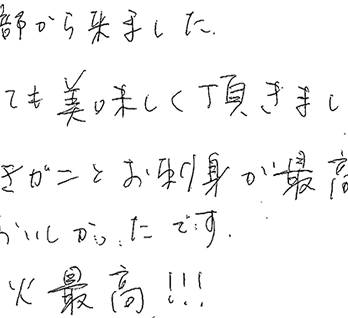 部から来ました.
ても美味しく頂きまし
きがニとお刺身が最高
おいしかったです.
火最高!!!